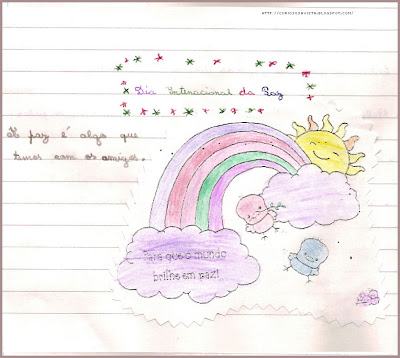 Dia Internacional da Paz
A paz é algo que
temos com os amigos.
Para que o mundo
brilhe em paz!